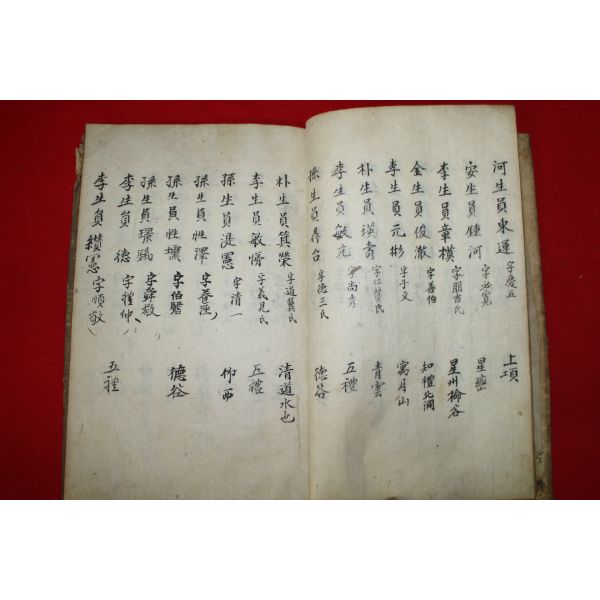 河生員東運 字慶五 上項
安生員鍾河 寬 星巒
李生員章模 字朋吉氏
金生員俊澈 字善伯 星州 谷
李生員元彬 字子文 知禮北洞
朴生員瑛壽 字仁賛氏 寓月山
李生員敏亢 字尚秀 青雲
孫生員 台 字德三氏 五禮
德谷
朴生員箕榮 字道賛氏 清道水也
李生員敏脩 字義見氏 五禮
孫生員湜憲 字清一
孫生員性澤 字 仰西
孫生員性壎 字伯賢 德谷
孫生員璟賜 字舜敬
李生員 德 字禮仲
李生員纘憲 字順敬 五禮